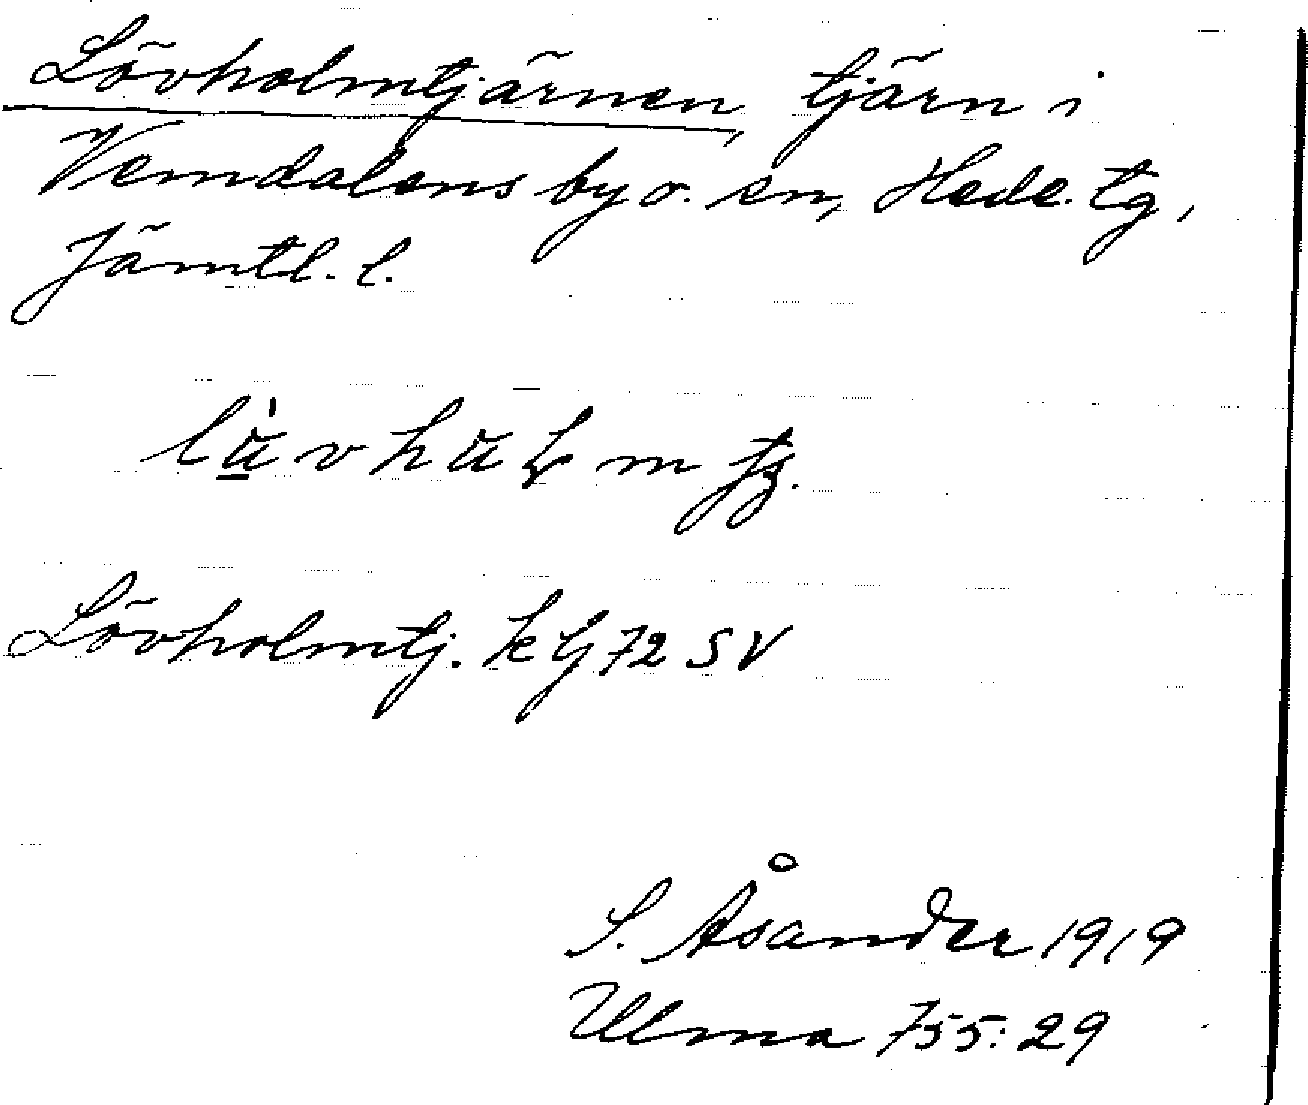 Lövholmtjärnen, tjärn i
Vemdalens by o. sn, Hede. tg,
Jämtl. l.
Lövholmtj. kG 72 SV
S. Åsander 1919
Ulma 755:29